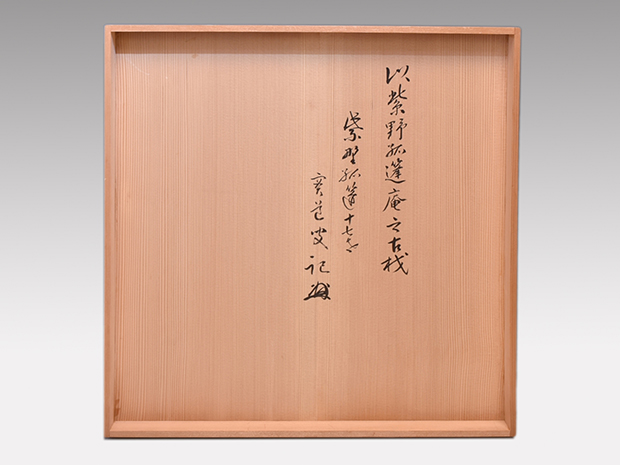 以紫野孤篷庵之古材
紫野孤篷十七世
寛道叟記